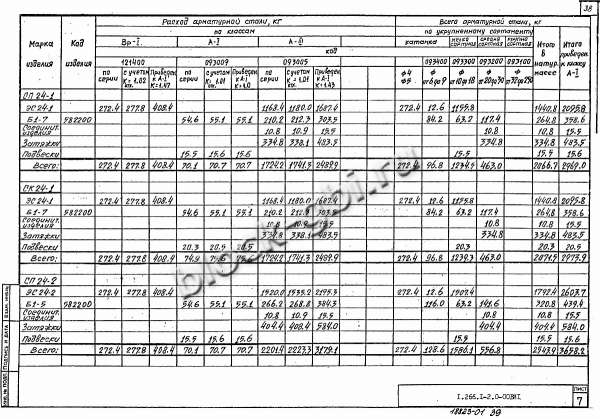 38
Расход арматурной стали, кг
Всего арматурной стали, кг
по классам
по укрупненному сортаменту
Марка изделия
Код изделия
Вр-I
А-I
А-III
катанка
мелкосортная
среднесортная
крупносортная
Итого в натур. массе
Итого приведен к классу А-I
код
121400
093009
093005
093400
093300
093200
093100
по серии
с учетом К=1,02 отх.
Приведен к А-I К=1,47
по серии
с учетом К=1,01 отх.
Приведен к А-I К=1,0
по серии
с учетом К=1,01 отх.
Приведен к А-I К=1,43
СП 24-1
ЭС 24-1 272.4 277.8 408.4 1168.4 1180.0 1687.4 272.4 12.6 1155.8 1440.8 2095.8
Б1-7 582200 54.6 55.1 55.1 210.2 212.3 303.5 84.2 63.2 117.4 264.8 358.6
Соединит. изделия 10.8 10.9 15.5 10.8 10.8 15.5
Затяжки 334.8 338.1 483.5 334.8 334.8 483.5
Подвески 15.5 15.6 15.6 15.5 15.5 15.6
Всего: 272.4 277.8 408.4 70.1 70.7 70.7 1724.2 1741.3 2489.9 272.4 96.8 1234.5 463.0 2066.7 2969.0
СК 24-1
ЭС 24-1 272.4 277.8 408.4 1168.4 1180.0 1687.4 272.4 12.6 1155.8 1440.8 2095.8
Б1-7 582200 54.6 55.1 55.1 210.2 212.3 303.5 84.2 63.2 117.4 264.8 358.6
Соединит. изделия 10.8 10.9 15.5 10.8 10.8 15.5
Затяжки 334.8 338.1 483.5 334.8 334.8 483.5
Подвески 20.3 20.5 20.5 20.3 20.3 20.5
Всего: 272.4 277.8 408.4 74.9 75.6 1724.2 1741.3 2489.9 272.4 96.8 1239.3 463.0 2071.5 2973.9
СП 24-2
ЭС 24-2 272.4 277.8 408.4 1520.0 1535.2 2195.3 272.4 12.6 1507.4 1792.4 2603.7
Б1-8 582200 54.6 55.1 55.1 266.2 268.8 384.3 116.0 63.2 141.6 320.8 439.4
Соединит. изделия 10.8 10.9 15.5 10.8 10.8 15.5
Затяжки 404.4 408.4 584.0 404.4 404.4 584.0
Подвески 15.5 15.6 15.6 15.5 15.5 15.6
Всего: 272.4 277.8 408.4 70.1 70.7 70.7 2201.4 2223.3 3179.1 272.4 128.6 1586.1 556.8 2543.9 3658.2
block-gbi.ru
1.266.1-2.0-00ВМ1
Лист
7
18823-01 39